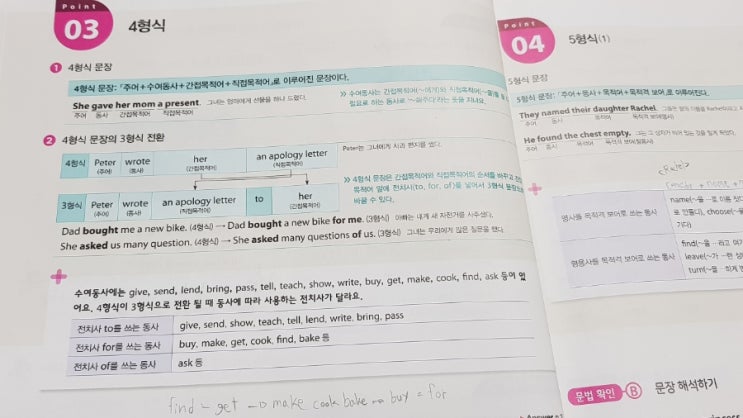 Point
03
4형식
1 4형식 문장
4형식 문장: 「주어+수여동사+간접목적어+직접목적어」로 이루어진 문장이다.
She gave her mom a present. 그녀는 엄마에게 선물을 하나 드렸다.
주어 동사 간접목적어 직접목적어
» 수여동사는 간접목적어(~에게)와 직접목적어(~을)를
필요로 하는 동사로 '~해주다'라는 뜻을 지녀요.
2 4형식 문장의 3형식 전환
4형식 Peter wrote her an apology letter
(주어) (동사) (간접목적어) (직접목적어)
Peter는 그녀에게 사과 편지를 썼다.
3형식 Peter wrote an apology letter to her
(주어) (동사) (직접목적어) (간접목적어)
» 4형식 문장은 간접목적어와 직접목적어의 순서를 바꾸고
목적어 앞에 전치사(to, for, of)를 넣어서 3형식 문장으로
바꿀 수 있다.
Dad bought me a new bike. (4형식) → Dad bought a new bike for me. (3형식) 아빠는 내게 새 자전거를 사주셨다.
She asked us many question. (4형식) → She asked many questions of us. (3형식) 그녀는 우리에게 많은 질문을 했다.
수여동사에는 give, send, lend, bring, pass, tell, teach, show, write, buy, get, make, cook, find, ask 등이 있
어요. 4형식이 3형식으로 전환 될 때 동사에 따라 사용하는 전치사가 달라요.
전치사 to를 쓰는 동사 give, send, show, teach, tell, lend, write, bring, pass
전치사 for를 쓰는 동사 buy, make, get, cook, find, bake 등
전치사 of를 쓰는 동사 ask 등
find - get → make cook bake → buy = for
Point
04
5형식(1)
5형식 문장
5형식 문장: 「주어+동사+목적어+목적격 보어」로 이루어진다.
They named their daughter Rachel.
주어 동사 목적어 목적격 보어(명사)
He found the chest empty.
주어 동사 목적어
명사를 목적격 보어로 쓰는 동사
name(~을 …로 이름 짓다
로 만들다), choose(~을
기다)
형용사를 목적격 보어로 쓰는 동사
find(~을 …라고 여
leave(~가 …한 상
turn(~을 …하게
문법 확인 B 문장 해석하기